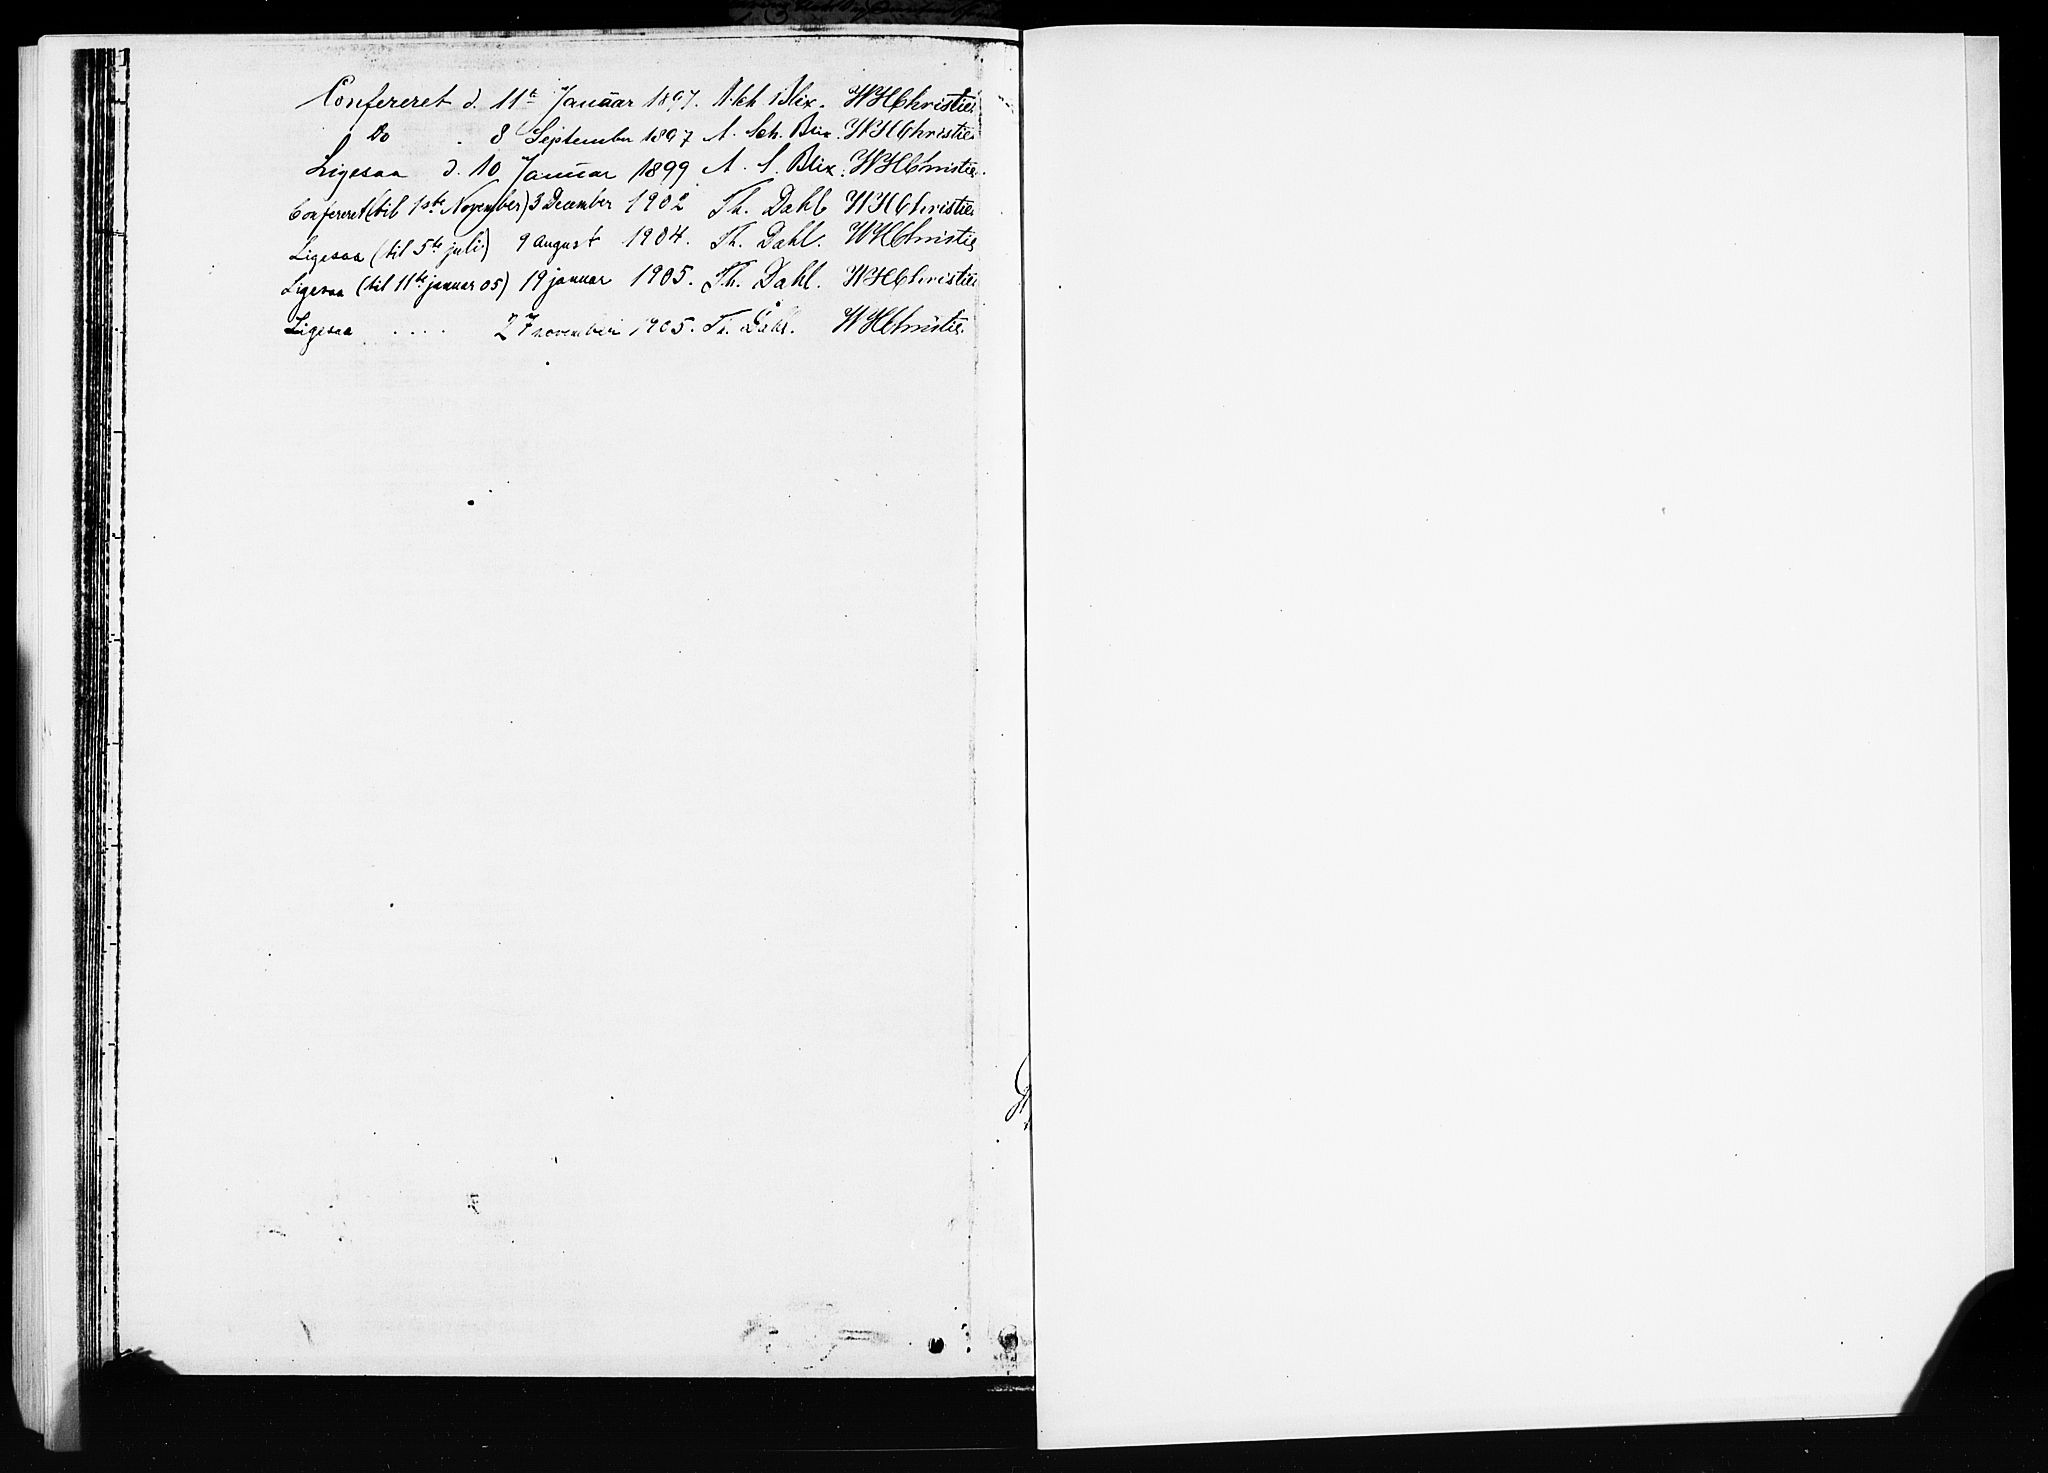 Confereret d. 11te Januar 1897. A. Sch. Blix. WHChristie.
Do . 8 September 1897 A. Sch. Blix. WHChristie
Ligesaa d. 10 Januar 1899 A. S. Blix. WHChristie.
Confereret (til 1ste November) 3 December 1902 Th. Dahl WHChristie
Ligesaa (til 5te juli) 9 august 1904. Th. Dahl. WHChristie
Ligesaa (til 11te januar 05) 19 januar 1905. Th. Dahl. WHChristie
Ligesaa .... 27 november 1905. Th. Dahl. WHChristie.